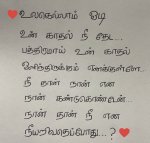 உலகெல்லாம் ஓடி
உன் காதல் நீ தேட...
பத்திரமாய் உன் காதல்
ஒளிந்திருக்கும் எனக்குள்ளே
நீ தான் நான் என
நான் கண்டுகொண்டேன்...
நான் தான் நீ என
நீயறிவதெப்போது...?